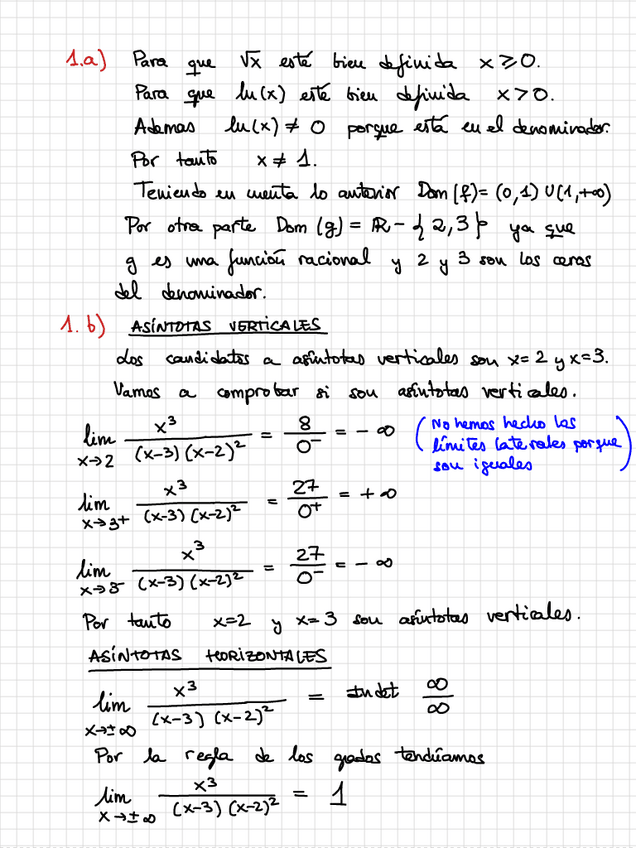 1.a) Para que √x esté bien definida x ⩾ 0.
Para que ln(x) esté bien definida x > 0.
Ademas ln(x) ≠ 0 porque está en el denominador.
Por tanto x ≠ 1.
Teniendo en cuenta lo anterior Dom(f) = (0,1) ∪ (1,+∞)
Por otra parte Dom (g) = ℝ - {2,3} ya que
g es una función racional y 2 y 3 son los ceros
del denominador.
1.b) ASÍNTOTAS VERTICALES
Los candidatos a asíntotas verticales son x=2 y x=3.
Vamos a comprobar si son asíntotas verticales.
lim x→2 x³/((x-3)(x-2)²) = 8/0⁻ = -∞ (No hemos hecho los límites laterales porque son iguales)
lim x→3⁺ x³/((x-3)(x-2)²) = 27/0⁺ = +∞
lim x→3⁻ x³/((x-3)(x-2)²) = 27/0⁻ = -∞
Por tanto x=2 y x=3 son asíntotas verticales.
ASÍNTOTAS HORIZONTALES
lim x→±∞ x³/((x-3)(x-2)²) = Indet ∞/∞
Por la regla de los grados tendríamos
lim x→±∞ x³/((x-3)(x-2)²) = 1